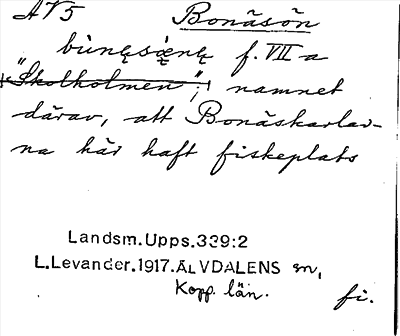 AV5 Bonäsön
bùnęsǫ̀ęnę f. VII a
"Skolholmen"; namnet
därav, att Bonäskarlar-
na här haft fiskeplats
Landsm. Upps. 339:2
L. Levander. 1917. ÄLVDALENS sn,
Kopp. län. fi.